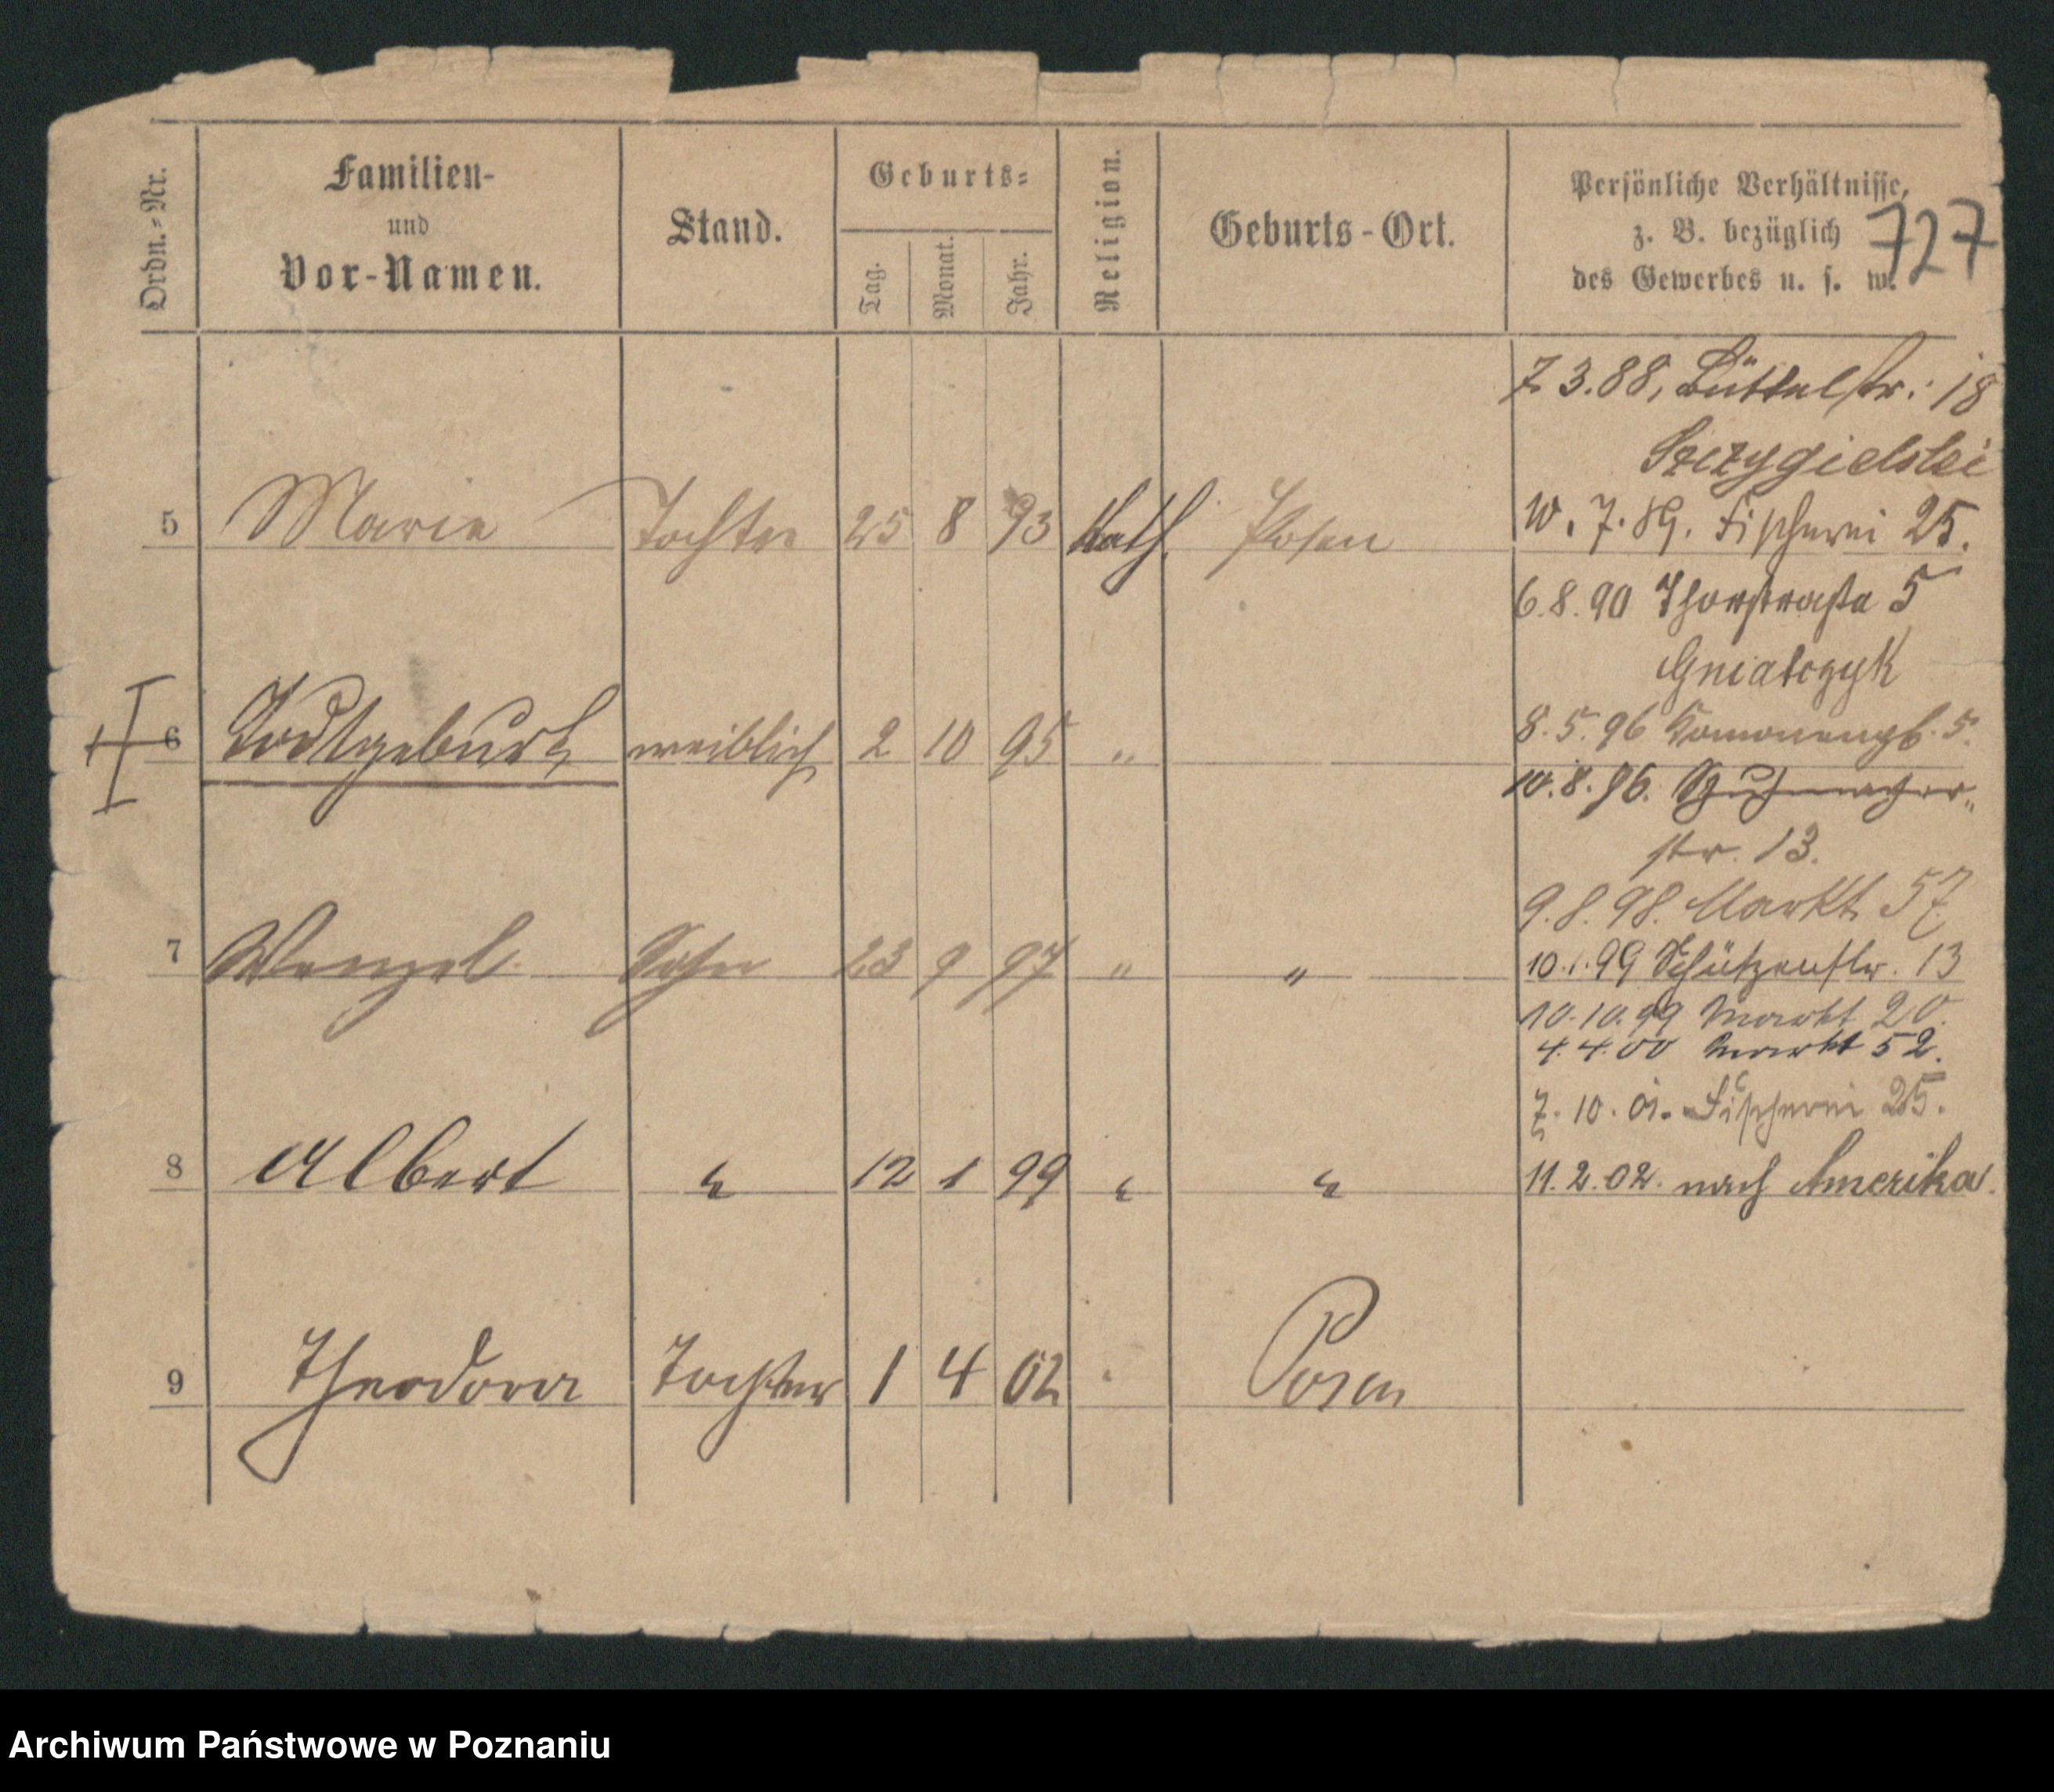 Ordn.-Nr.
Familien-
und
Vor-Namen.
Stand.
Geburts-
Tag.
Monat.
Jahr.
Religion.
Geburts-Ort.
Persönliche Verhältnisse,
z. B. bezüglich
des Gewerbes u. s. w.
727
7.3.88, Büttelstr. 18
Szczygielski
5 Marie Tochter 25 8 93 Kath. Posen
10.7.89. Fischerei 25.
6.8.90 Thorstraße 5
Gniatczyk
6 Todtgeburt weiblich 2 10 95 "
8.5.96 5.
10.8.96. Schuhmacher-
str. 13.
9.8.98. Markt 57
7 Wenzel Sohn 23 9 97 " "
10.1.99 Schützenstr. 13
10.10.99 Markt 20.
4.4.00 Markt 52.
7.10.01. Fischerei 25.
8 Albert " 12 1 99 " "
11.2.02. nach Amerika.
9 Theodora Tochter 1 4 02 Posen
Archiwum Państwowe w Poznaniu